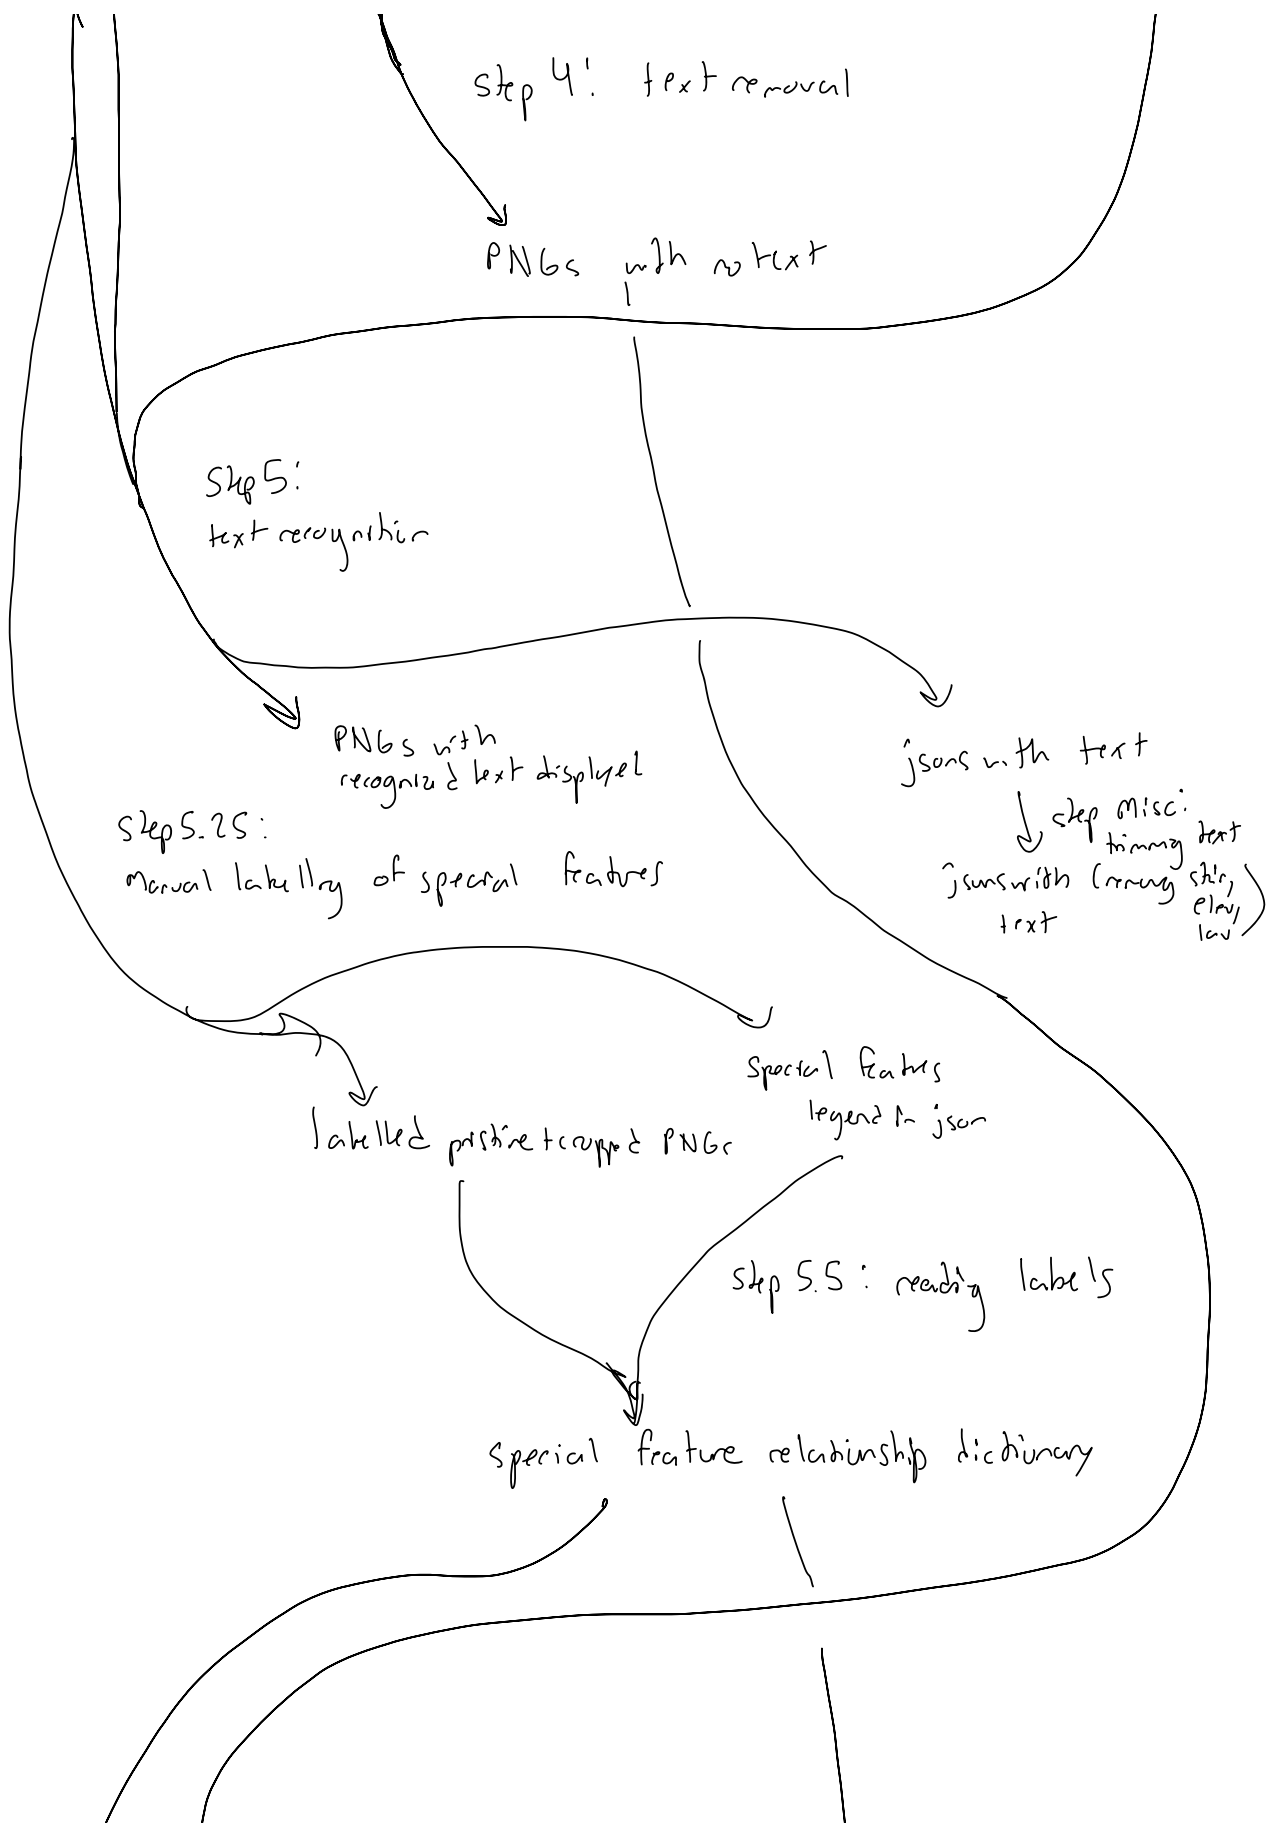 step 4: text removal
PNGs with no text
Step 5:
text recognition
PNGs with
recognized text displayed
jsons with text
step misc:
trimming text
jsons with
text
(removing stair,
elev,
lav)
Step 5.25:
Manual labelling of special features
special features
legend in json
labelled pristine + cropped PNGs
Step 5.5: reading labels
special feature relationship dictionary